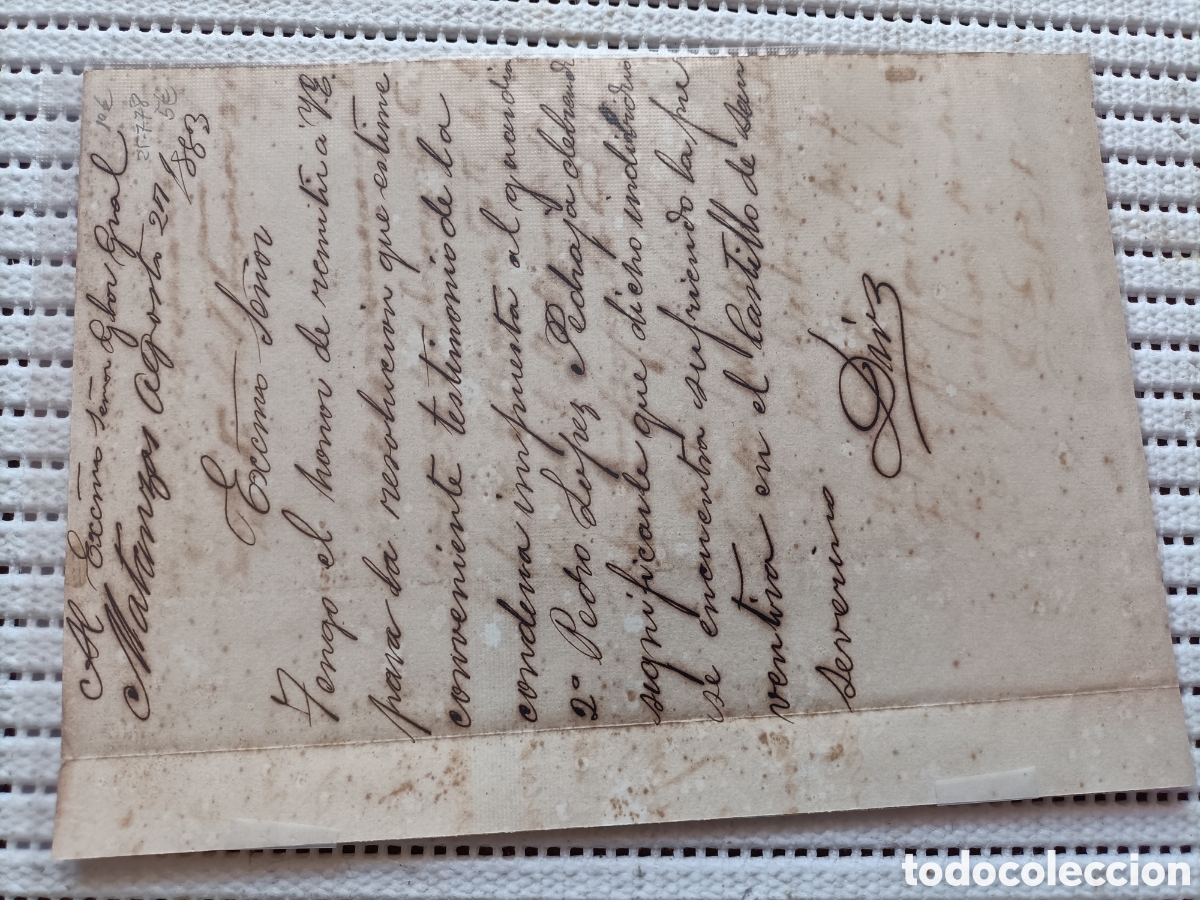 Al Excmo señor Gbor Gral
Matanzas Agosto 27/
1893
21.778
5E
Excmo Señor
Tengo el honor de remitir a V.E.
para la resolucion que estime
conveniente testimonio de la
condena impuesta al guardia
2º Pedro Lopez Pedraja debiendo
significarle que dicho individuo
se encuentra sufriendo la pre
ventiva en el Castillo de San
Severino
todocoleccion